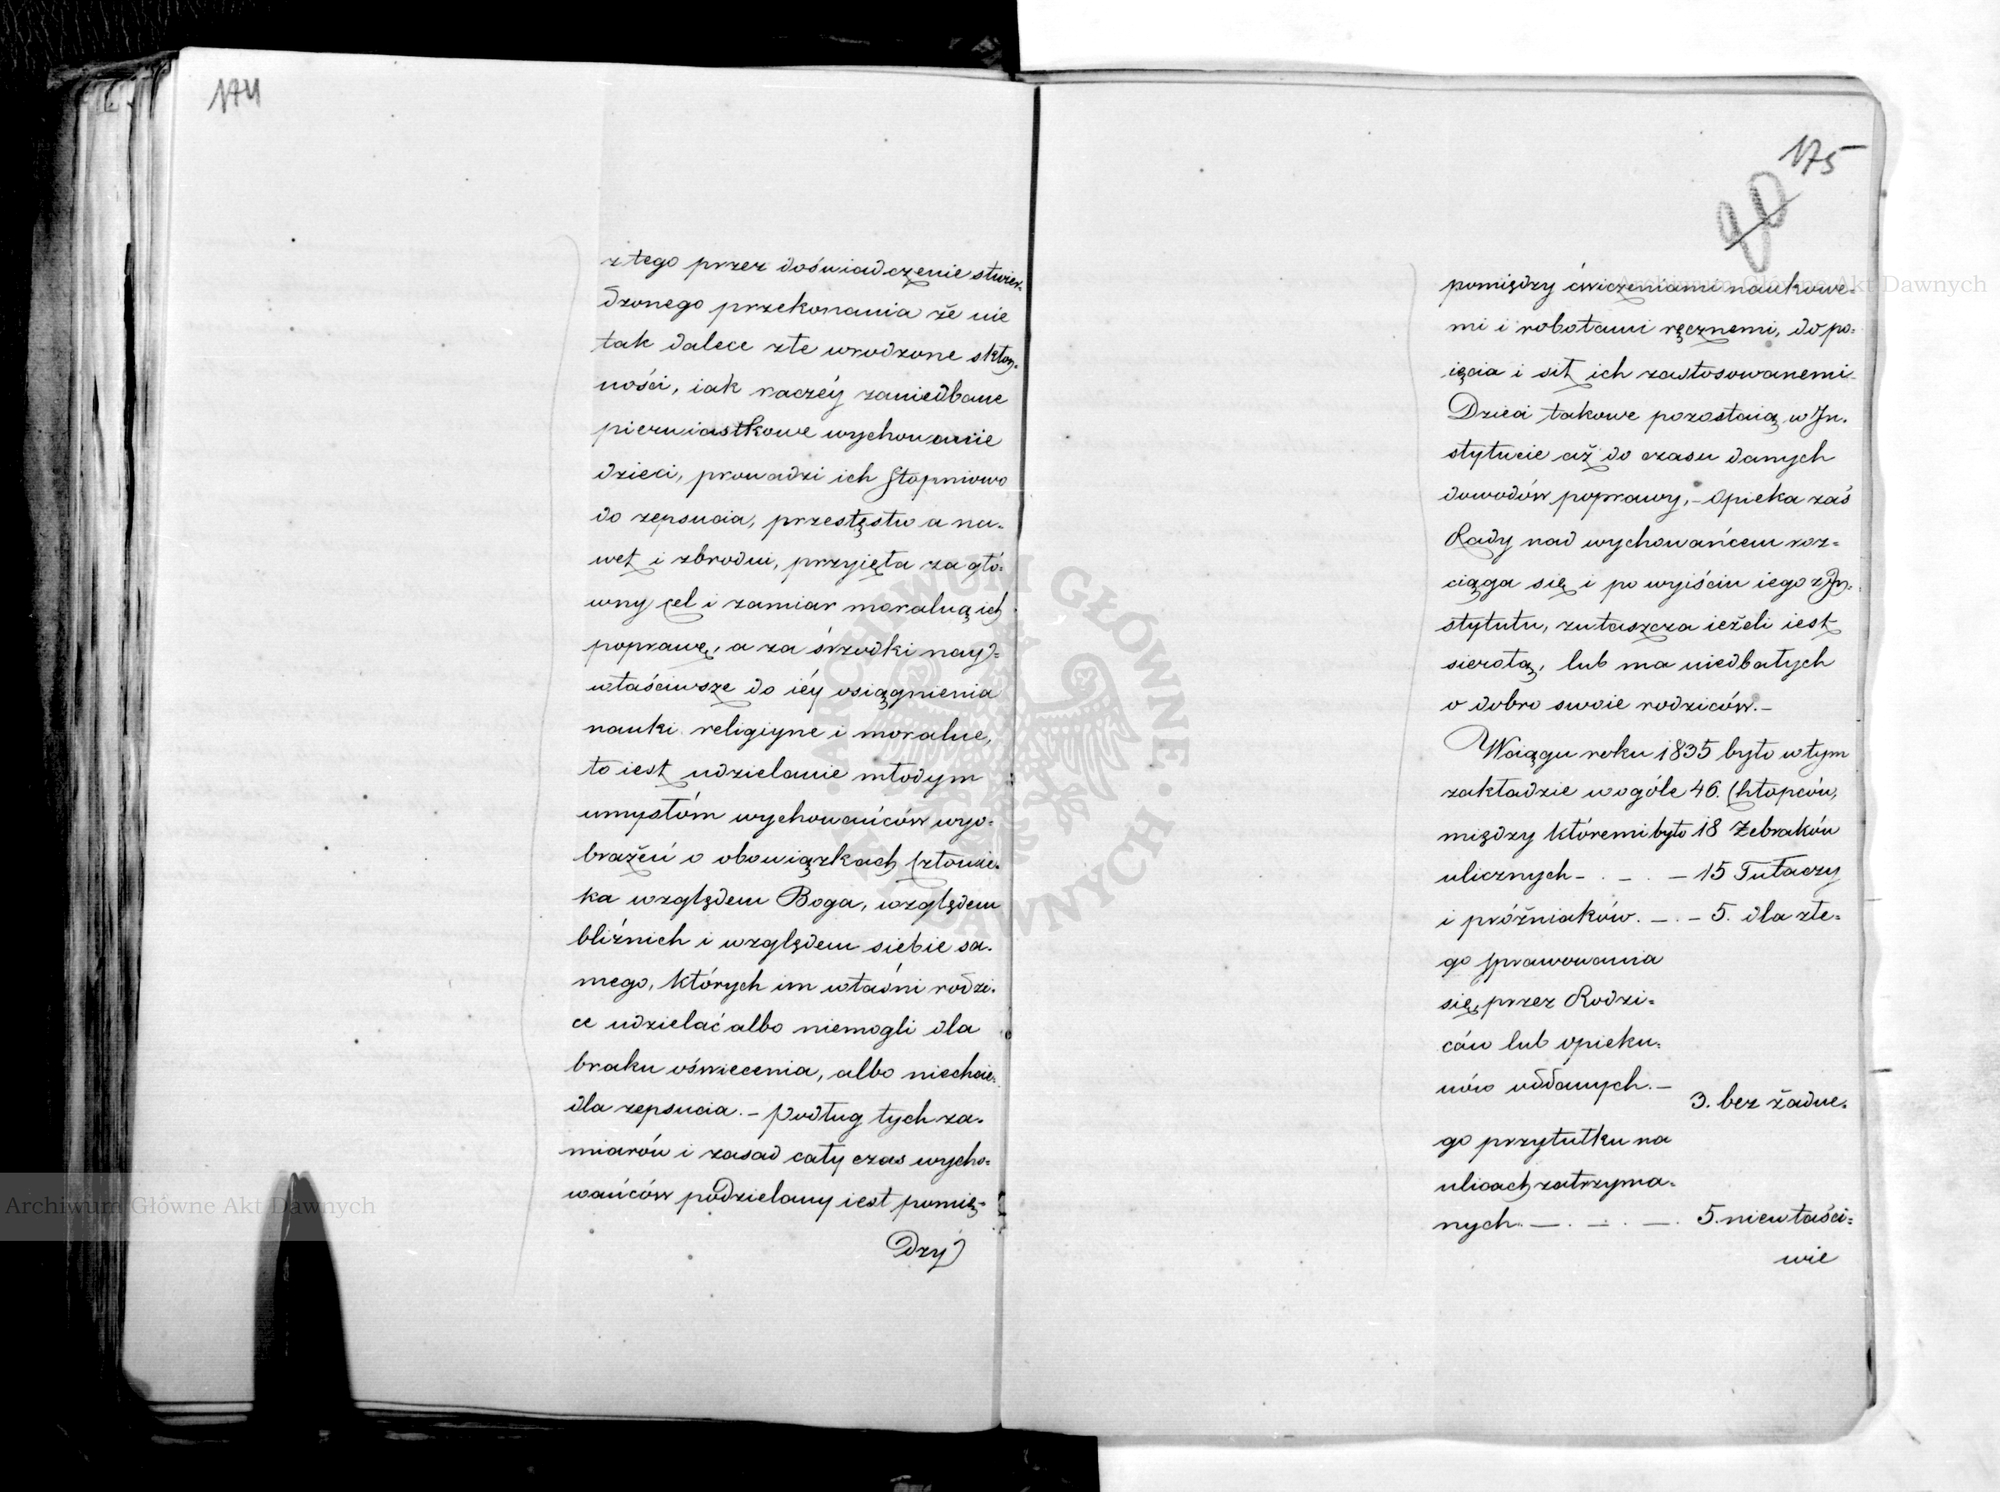 174
z tego przez doświadczenie stwier-
dzonego przekonania że nie
tak dalece złe wrodzone skłon-
ności, iak raczéy zaniedbane
pierwiastkowe wychowanie
dzieci, prowadzi ich stopniowo
do zepsucia, przestęstw a na-
wet i zbrodni, przyięła za głó-
wny cel i zamiar moralną ich
poprawę, a za śrzodki nay-
właściwsze do iéy osiągnienia
nauki religiyne i moralne,
to iest udzielanie młodym
umysłóm wychowańców wyo-
brażeń o obowiązkach człowie-
ka względem Boga, względem
bliźnich i względem siebie sa-
mego, których im właśni rodzi-
ce udzielać albo niemogli dla
braku oświecenia, albo niechcie-
dla zepsucia. - Podług tych za-
miarów i zasad cały czas wycho-
wańców podzielany iest pomię-
dzy
175
90
pomiędzy ćwiczeniami naukowe-
mi i robotami ręcznemi, do po-
ięcia i sił ich zastosowanemi
Dzieci takowe pozostaią w In-
stytucie aż do czasu danych
dowodów poprawy, - opieka zaś
Rady nad wychowańcem roz-
ciąga się i po wyiściu iego z In-
stytutu, zwłaszcza ieżeli iest
sierotą, lub ma niedbałych
o dobro swoie rodziców. -
W ciągu roku 1835 było w tym
zakładzie w ogóle 46. Chłopców,
między któremi było 18 Żebraków
ulicznych - . - . - 15 Tułaczy
i próżniaków. - . - 5. dla złe-
go sprawowania
się, przez Rodzi-
ców lub opieku-
nów oddanych. -
3. bez żadne-
go przytułku na
ulicach zatrzyma-
nych. - . - . - . 5. niewłaści-
wie
Archiwum Główne Akt Dawnych
Archiwum Główne Akt Dawnych
ARCHIWUM GŁÓWNE AKT DAWNYCH